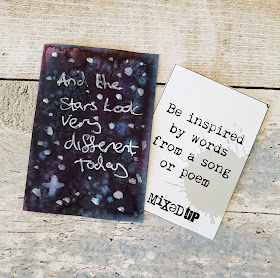 And the
Stars Look
very
different
Today
Be inspired
by words
from a song
or poem
MixeD UP